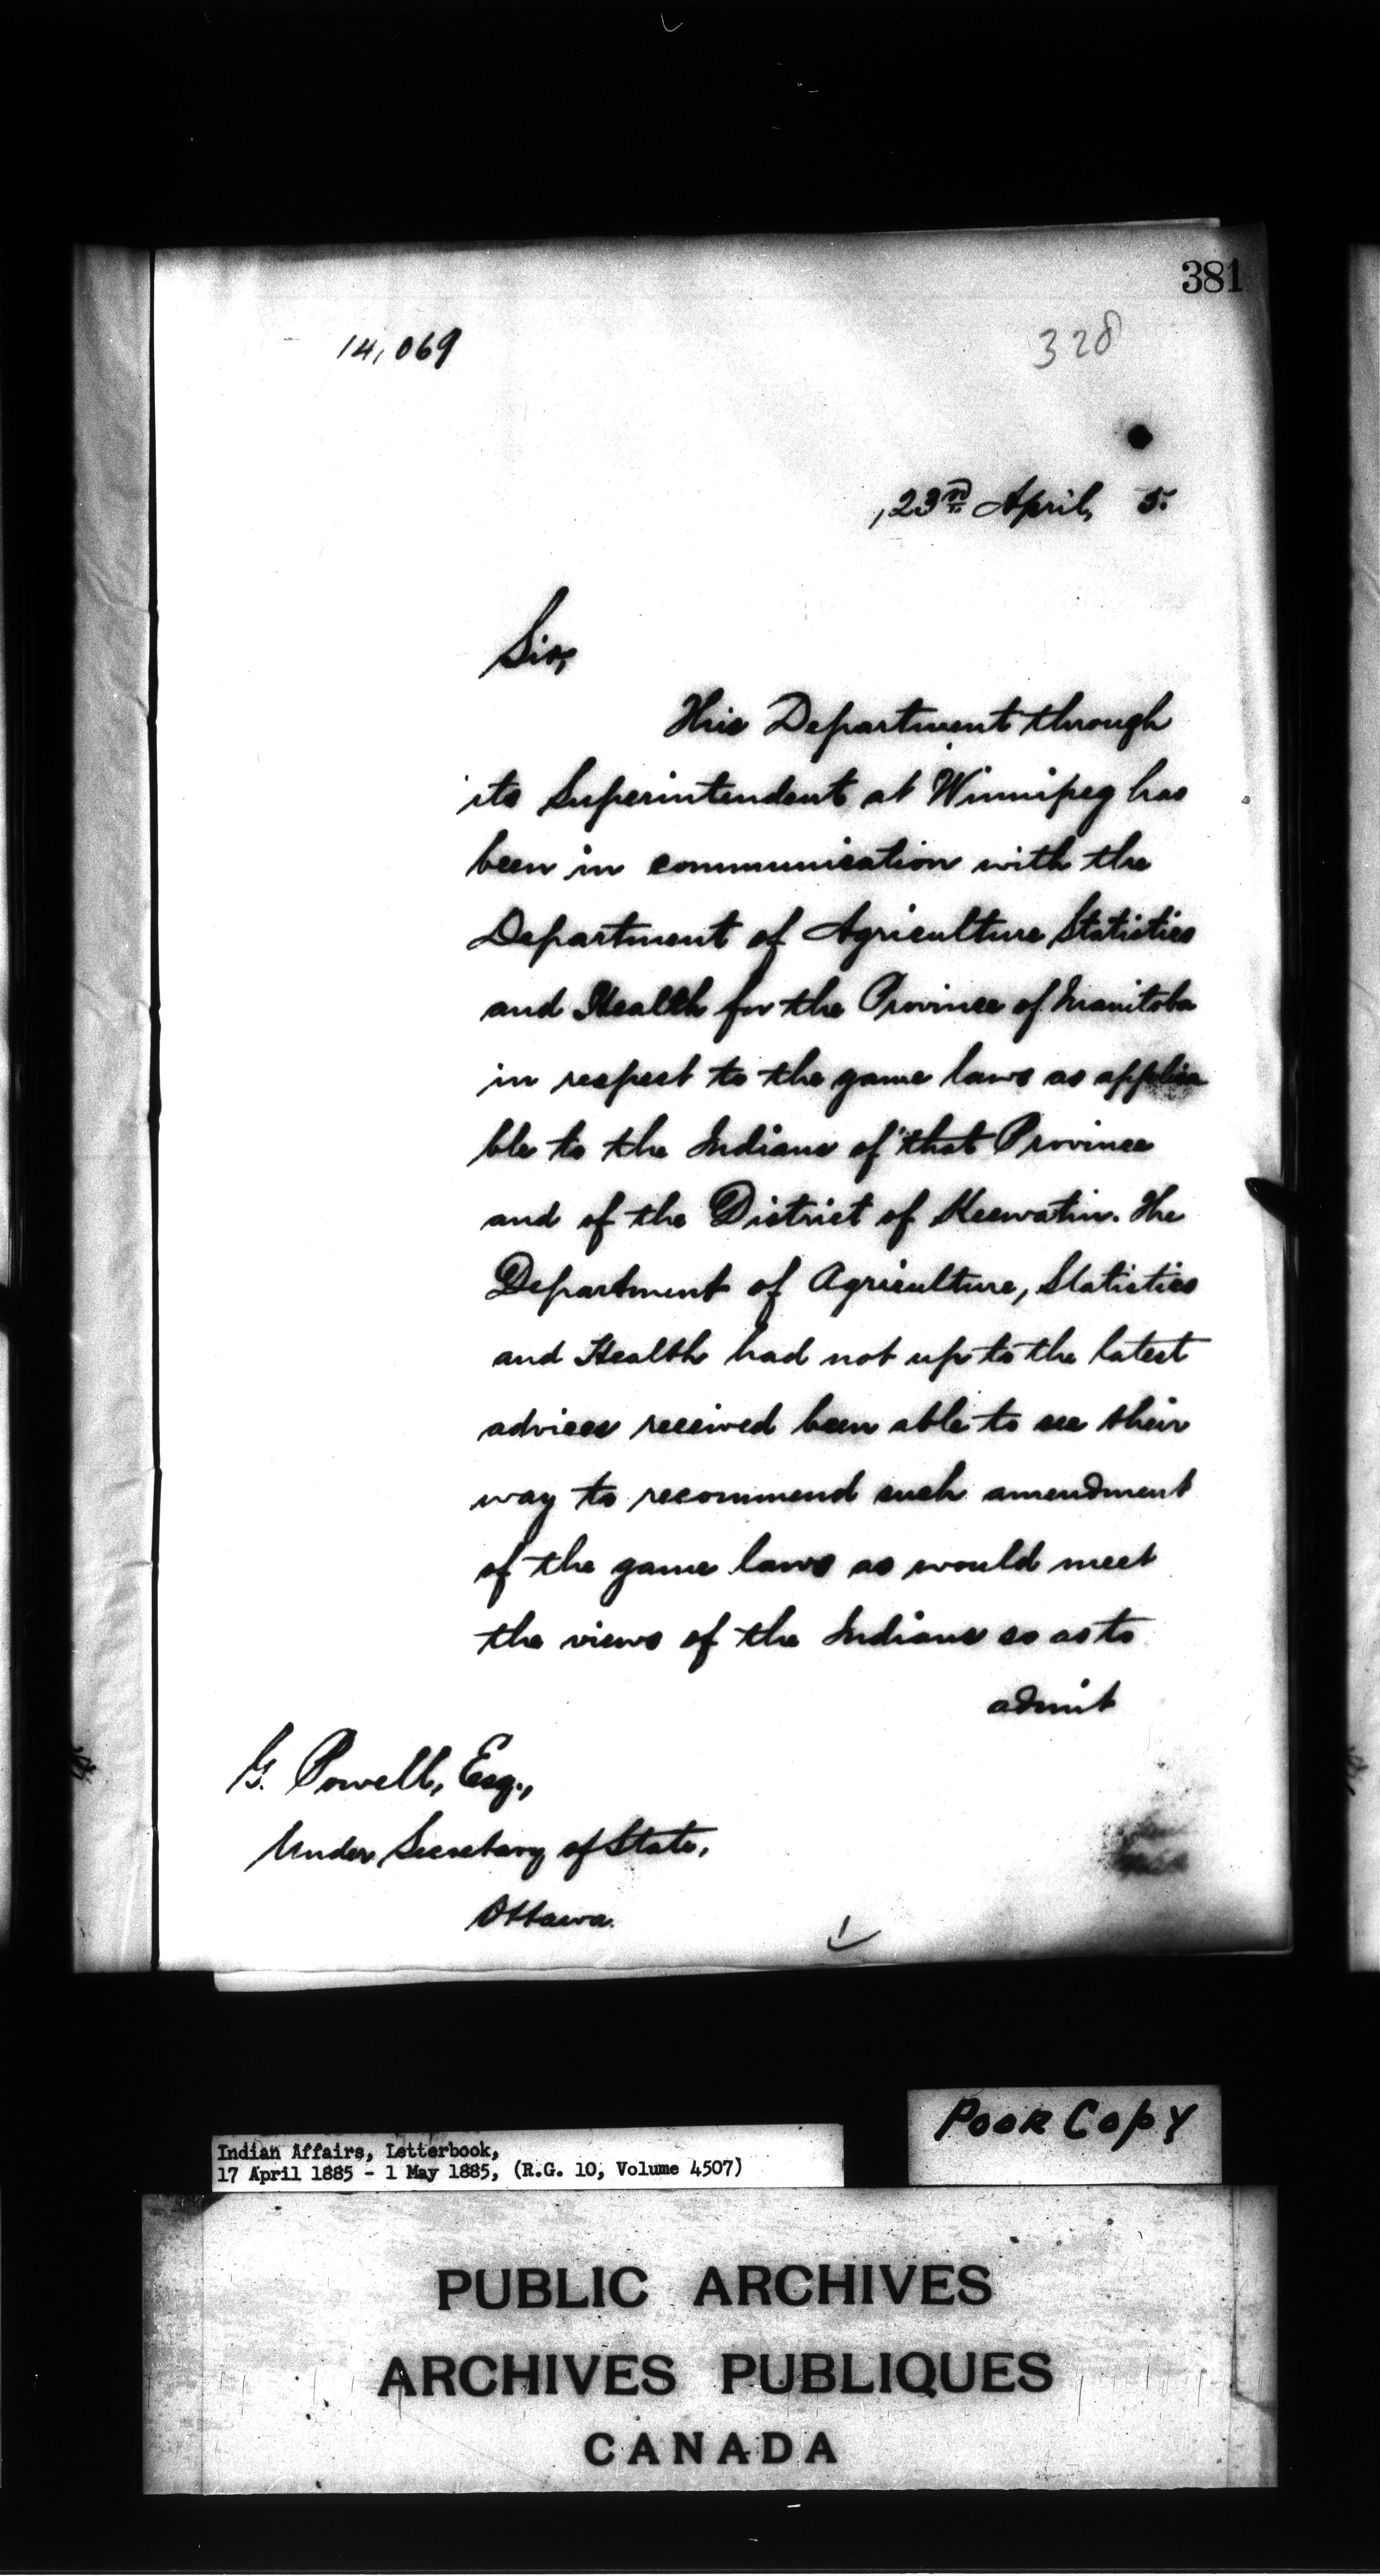 381
14,069
328
23rd April, 5.
Sir,
This Department through
its Superintendent at Winnipeg has
been in communication with the
Department of Agriculture Statistics
and Health for the Province of Manitoba
in respect to the game laws as applica
ble to the Indians of that Province
and of the District of Keewatin. The
Department of Agriculture, Statistics
and Health had not up to the latest
advices received been able to see their
way to recommend such amendment
of the game laws as would meet
the views of the Indians so as to
admit
G. Powell, Esq.,
Under Secretary of State,
Ottawa.
POOR COPY
Indian Affairs, Letterbook,
17 April 1885 - 1 May 1885, (R.G. 10, Volume 4507)
PUBLIC ARCHIVES
ARCHIVES PUBLIQUES
CANADA